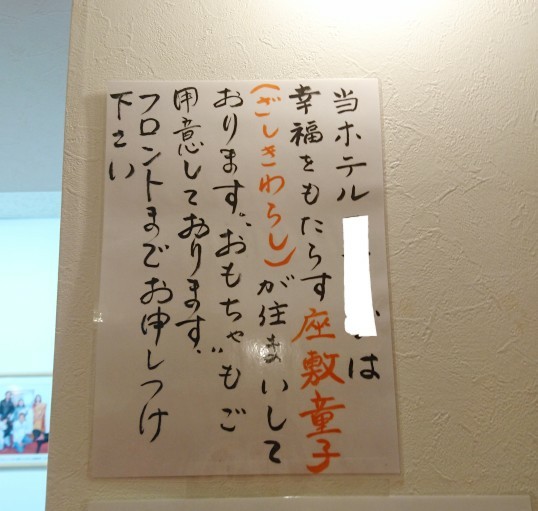 当ホテル には
幸福をもたらす座敷童子
(ざしきわらし)が住まいして
おります。"おもちゃ"もご
用意しております。
フロントまでお申しつけ
下さい